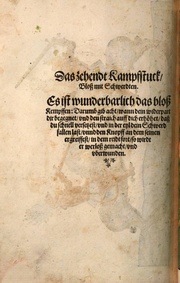 Das zehendt Kampffstuck/
Bloß mit Schwerdten.
Es ist wunderbarlich das bloß
Kempffen: Darumb gib acht/ wann dein widerpart
dir begegnet/ und den streich auff dich erhöhet/ daß
du schnell versetzest/ und in der eyl dein Schwerd
fallen last/ unnd den Knopff an dem seinen
ergreiffest/ in dem reidt fort/ so wirdt
er werloß gemacht/ und
überwunden.